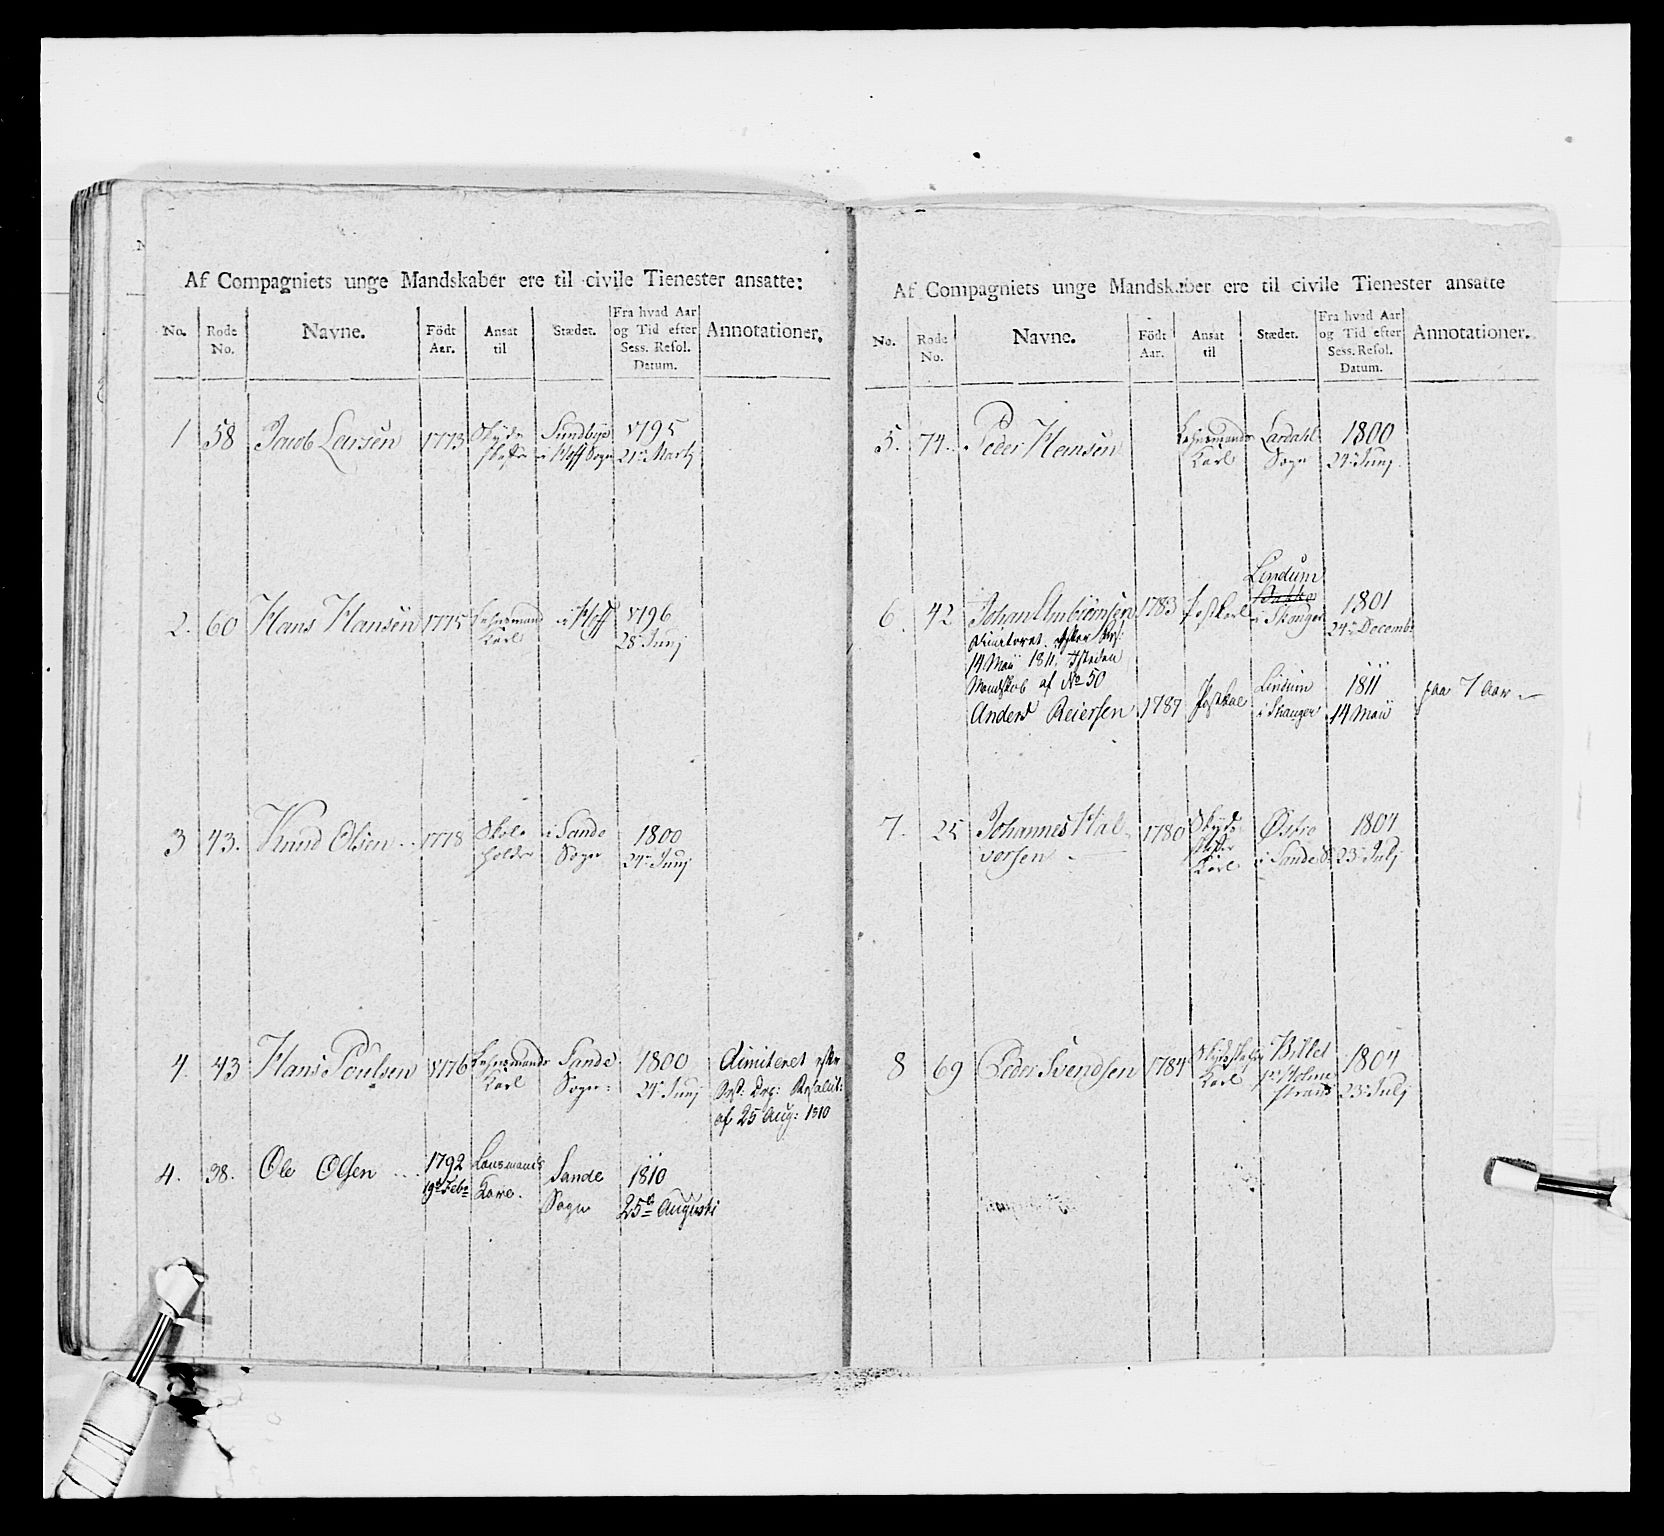 Af Compagniets unge Mandskaber ere til civile Tienester ansatte:
No. Rode No. Navne. Födt Aar. Ansat til Stædet. Fra hvad Aar og Tid efter Sess. Resol. Datum. Annotationer.
1 58 Jacob Larsen 1773 Skyds skaffer Sundbye i Hoff Sogn 1795 21de Martj
2. 60 Hans Hansen 1775 Lehnsmands Karl i Hoff 1796 28de Junj
3 43. Knud Olsen 1778 Skole holder i Sande Sogn 1800 24de Junj
4. 43 Hans Poulsen 1776 Lehnsmands Karl Sande Sogn: 1800 24de Junj Dimiteret efter
af 25 Aug: 1810
4. 38. Ole Olsen 1792 19de Febr Lensmands Sande Sogn 1810 25de Augusti
Af Compagniets unge Mandskaber ere til civile Tienester ansatte
No. Rode No. Navne. Födt Aar. Ansat til Stædet. Fra hvad Aar og Tid efter Sess. Resol. Datum. Annotationer.
5. 74. Peder Hansen Lehnsmands Karl Lardahl Sogn 1800 24de Junj
6. 42 Johan Ambiörnsen 1783 Postkarl Lindum i Skouger 1801 24de Decembr
14 Maii 1811, Isteden
Mandskab af No 50
Anders Reiersen 1787 Lindum i Skouger 1811 14 Maii paa 7 Aar
7. 25 Johannes Hal-
versen 1780 Skyds skaffer Karl Østre i Sande S: 1804 23de Julj
8 69 Peder Svendsen 1784 Skydsskaffer Karl Holme strand 1804 23de Julj